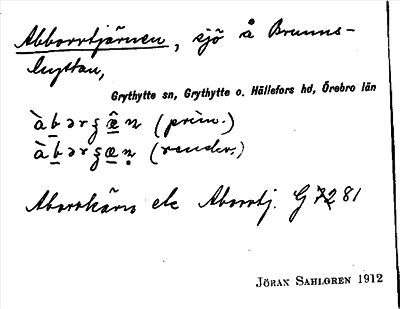 Abborrtjärnen, sjö å Brunns-
hyttan,
Grythytte sn, Grythytte o. Hällefors hd, Örebro län
àbərʒæn (prim.)
àbərʒæn (sander.)
Aborrkärn etc Aborrtj. G 72 81
JÖRAN SAHLGREN 1912